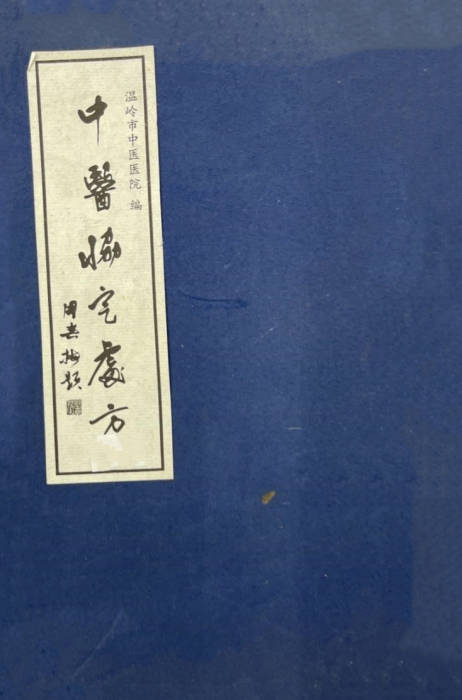 温岭市中医医院 编
中醫協定處方
周春梅题